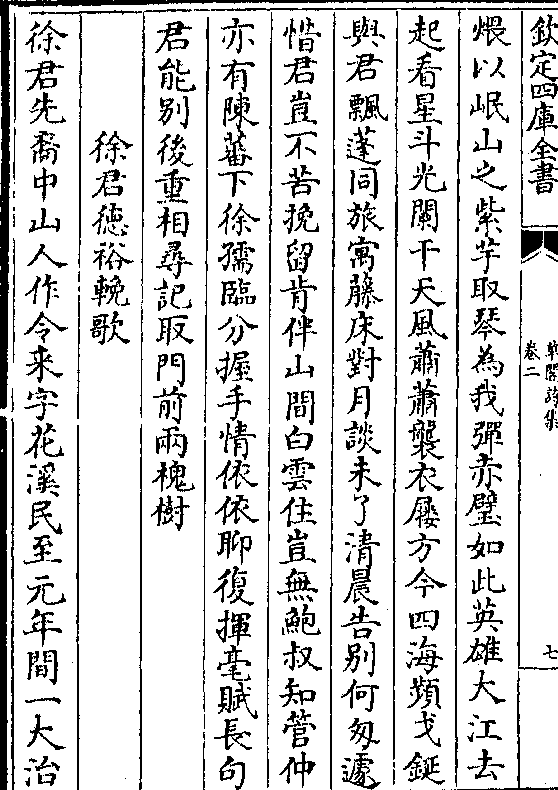 欽定四庫全書
卷二
七
煨以岷山之紫芋取琴為我彈赤壁如此英雄大江去
起看星斗光闌干天風蕭蕭襲衣屨方今四海頻戈鋋
與君飄蓬同旅寓藤床對月談未了清晨告别何匆遽
惜君豈不苦挽留肯伴山間白雲住豈無鮑叔知管仲
亦有陳蕃下徐孺臨分握手情依依聊復揮毫賦長句
君能别後重相尋記取門前兩槐樹
徐君德裕輓歌
徐君先裔中山人作令来字花溪民至元年間一大治